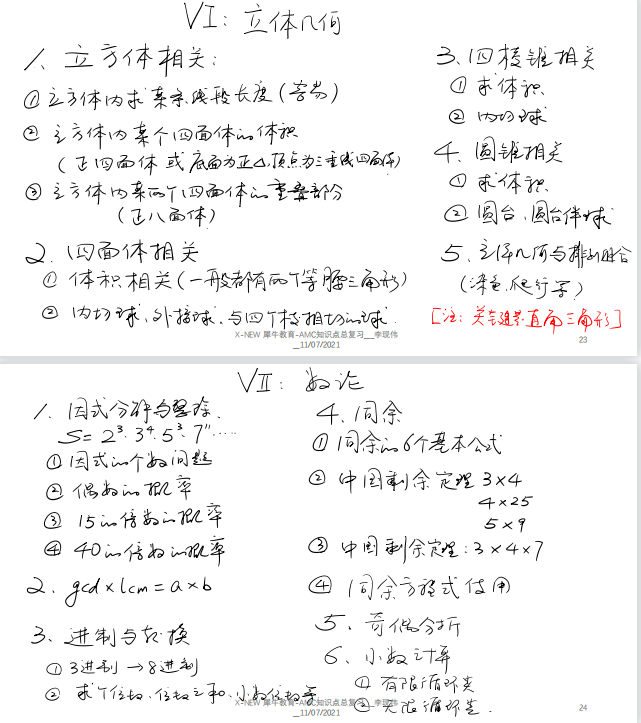 VI: 立体几何
1. 立方体相关:
① 立方体内求某条线段长度(容易)
② 立方体内某个四面体的体积
(正四面体 或 底面为正△,顶点为三垂线四面体)
③ 立方体内某两个四面体的重叠部分
(正八面体)
2. 四面体相关
① 体积相关(一般都有两个等腰三角形)
② 内切球、外接球、与四个棱相切的球.
3. 四棱锥相关
① 求体积
② 内切球
4. 圆锥相关
① 求体积.
② 圆台, 圆台伴球
5. 立体几何与排列组合
(染色, 爬行等)
[注: 关键还是直角三角形]
X-NEW 犀牛教育-AMC知识点总复习__李现伟
__11/07/2021
23
VII: 数论
1. 因式分解与整除.
S = 2³·3⁴·5³·7¹¹·····
① 因式的个数问题
② 偶数的概率
③ 15的倍数的概率
④ 40的倍数的概率
2. gcd×lcm=a×b
3. 进制与转换
① 3进制→8进制
② 求个位数、位数之和、小数位数等
4. 同余
① 同余的6个基本公式
② 中国剩余定理 3×4
4×25
5×9
③ 中国剩余定理: 3×4×7
④ 同余方程式使用
5. 奇偶分析
6. 小数计算
① 有限循环类
② 无限循环类.
X-NEW 犀牛教育-AMC知识点总复习__李现伟
11/07/2021
24